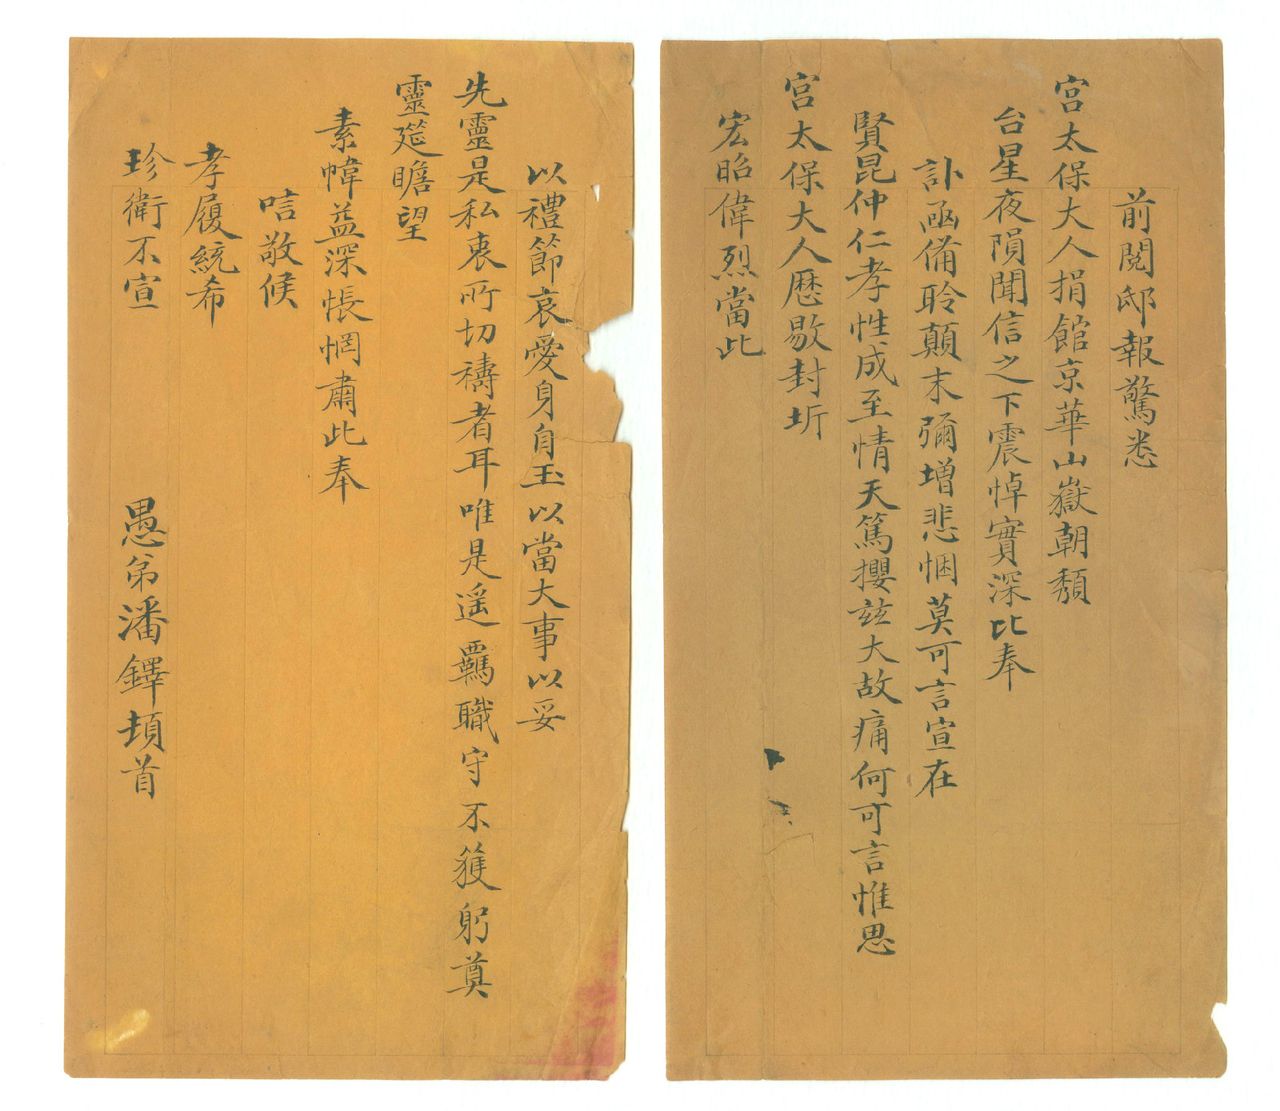 前閱邸報驚悉
宮太保大人捐館京華山嶽朝頹
台星夜隕聞信之下震悼實深比奉
訃函備聆顛末彌增悲悃莫可言宣在
賢昆仲仁孝性成至情天篤攖茲大故痛何可言惟思
宮太保大人歷敭封圻
宏昭偉烈當此
以禮節哀愛身自玉以當大事以妥
先靈是私衷所切禱者耳唯是遥羈職守不獲躬奠
靈筵瞻望
素幃益深悵惘肅此奉
唁敬候
孝履統希
珍衛不宣
愚弟潘鐸頓首